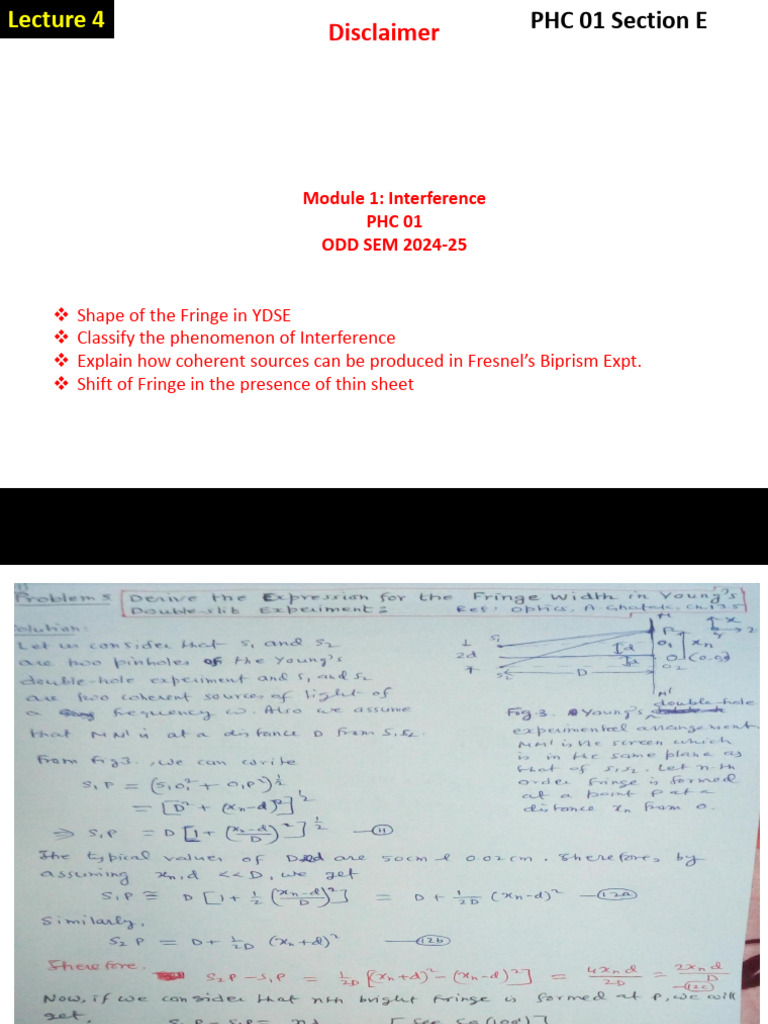 Lecture 4
Disclaimer
PHC 01 Section E
Module 1: Interference
PHC 01
ODD SEM 2024-25
❖ Shape of the Fringe in YDSE
❖ Classify the phenomenon of Interference
❖ Explain how coherent sources can be produced in Fresnel’s Biprism Expt.
❖ Shift of Fringe in the presence of thin sheet
Problem 5 Derive the Expression for the Fringe Width in Young's
Double-slit Experiment:
Ref: Optics, A. Ghatak, Ch.
Solution:
Let us consider that S1 and S2
are two pinholes of the Young's
double-hole experiment and S1 and S2
are two coherent sources of light of
a frequency ω. Also we assume
that MM' is at a distance D from S1S2.
S1
2d
S2
D
P
O1
O (0,0)
O2
xn
d
d
x
z
M'
Fig. 3. Young's double-hole
experimental arrangement
MM' is the screen which
is in the same plane as
that of S1S2. Let n-th
order fringe is formed
at a point P at a
distance xn from O.
From Fig 3., we can write
S1P = (S1O1² + O1P²)^1/2
= [D² + (xn-d)²]^1/2
⇒ S1P = D[1 + ((xn-d)/D)²]^1/2 —(11)
The typical values of D and d are 50cm & 0.02cm. Therefore, by
assuming xn, d << D, we get
S1P ≅ D[1 + 1/2 ((xn-d)/D)²] = D + 1/2D (xn-d)² —(12a)
Similarly,
S2P = D + 1/2D (xn+d)² —(12b)
Therefore,
S2P - S1P = 1/2D [(xn+d)² - (xn-d)²] = 4xnd/2D = 2xnd/D —(12c)
Now, if we consider that nth bright fringe is formed at P, we will
get,
S2P - S1P = nλ